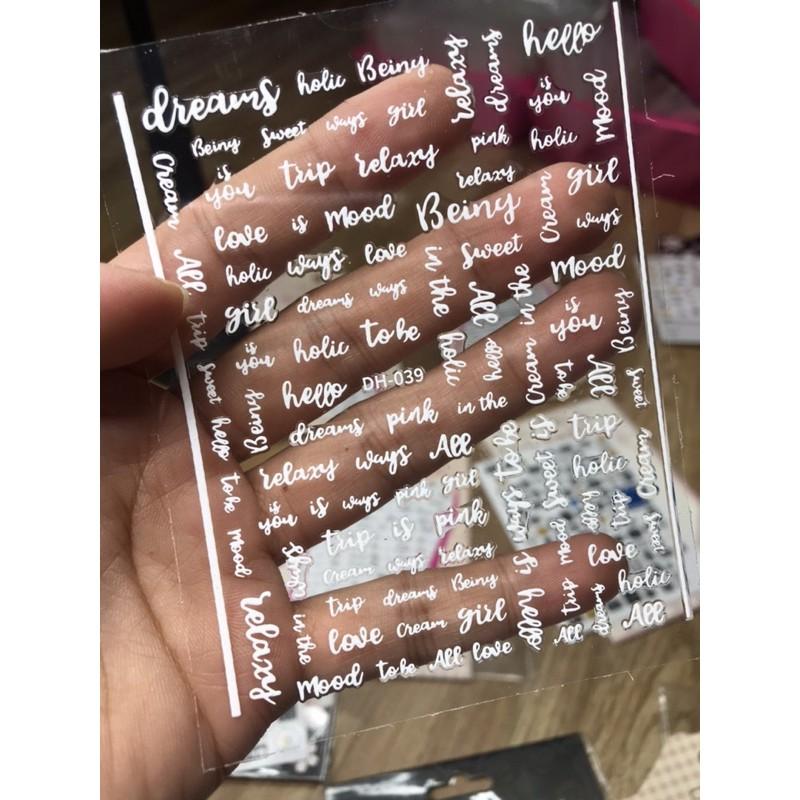 dreams holic Beiny relaxy dreams hello
Beiny Sweet ways girl is you Mood
Cream is you trip relaxy pink holic
relaxy girl
love is Mood Beiny Cream ways
All holic ways love in the Sweet Mood
girl dreams ways All in the is you Beiny
trip is you holic to be holic hello Cream to be All
Sweet Beiny hello DH-039 Sweet
hello dreams pink in the trip
relaxy ways All ways to be is holic Cream
to be is you is ways pink girl Sweet hello trip
Mood ways trip is pink Mood love Sweet
Cream ways relaxy is holic
relaxy trip dreams Beiny hello trip
in the love Cream girl dreams All
Mood to be All love All